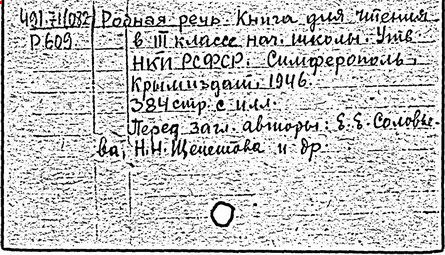 491.71(082) Родная речь. Книга для чтения
Р.609 в III классе нач. школы. Утв
НКП РСФСР. Симферополь,
Крымиздат, 1946.
384 стр. с илл.
Перед загл. авторы: Е.Е. Соловь-
ева, Н.Н. Щепетова и др.